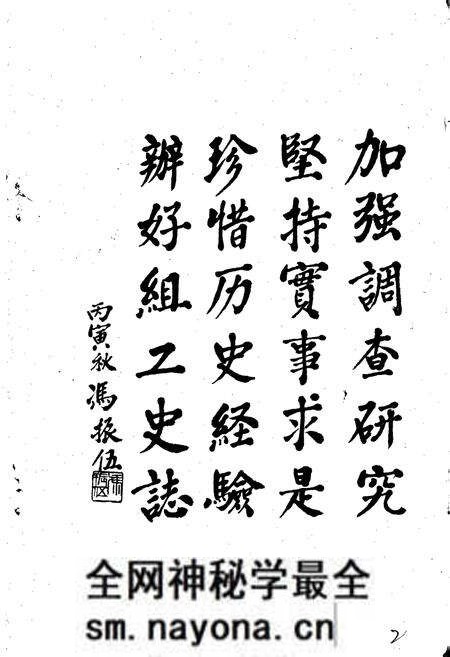 加强調查研究
堅持實事求是
珍惜历史経驗
辦好組工史誌
丙寅秋 馮振伍
全网神秘学最全
sm.nayona.cn
2